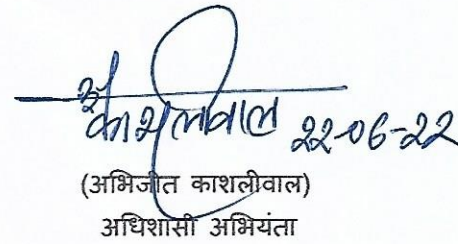 काशलीवाल 22-06-22
(अभिजीत काशलीवाल)
अधिशासी अभियंता